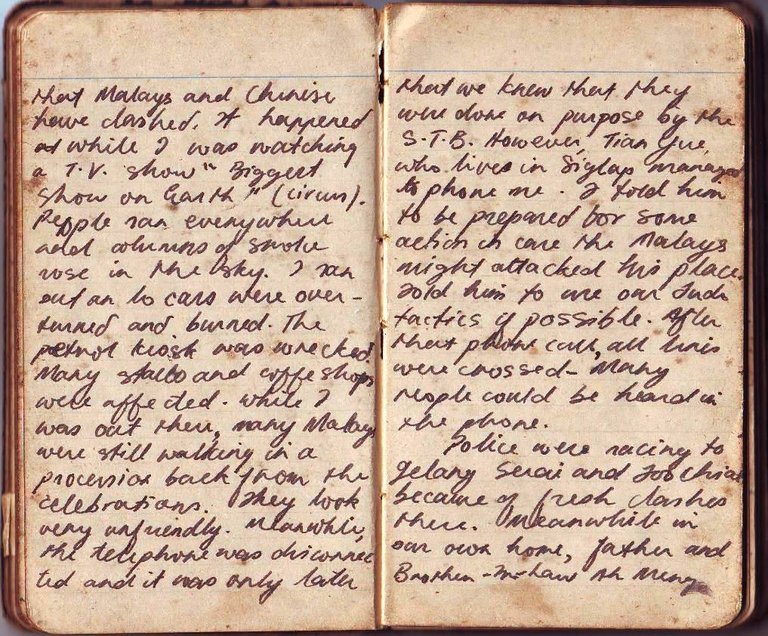 that Malays and Chinese
have clashed. It happened
at while I was watching
a T.V. show "Biggest
show on Earth" (circus).
People ran everywhere
and columns of smoke
rose in the sky. I ran
out an 10 cars were over-
turned and burned. The
petrol kiosk was wrecked.
Many stalls and coffeshops
were affected. While I
was out there, many Malays
were still walking in a
procession back from the
celebrations. They look
very unfriendly. Meanwhile,
the telephone was disconnec
ted and it was only later
that we knew that they
were done on purpose by the
S.T.B. However, Tian Yue,
who lives in Siglap managed
to phone me. I told him
to be prepared for some
action in case the Malays
might attacked his place.
Told him to use our Judo
tactics if possible. After
that phone call, all lines
were crossed- Many
people could be heard in
the phone.
Police were racing to
Gelang Serai and Joo Chiat
because of fresh clashes
there. Meanwhile in
our own home, father and
Brother-in-law Ah Meng